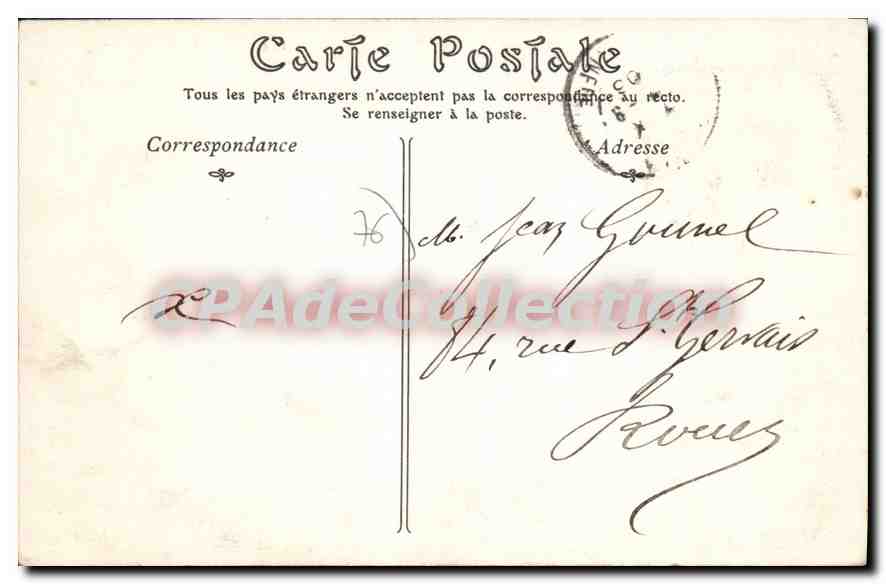 Carte Postale
Tous les pays étrangers n'acceptent pas la correspondance au recto.
Se renseigner à la poste.
Correspondance
Adresse
76
M. Jean Gounel
CPAdeCollection
84, rue St. Gervais
Rouen